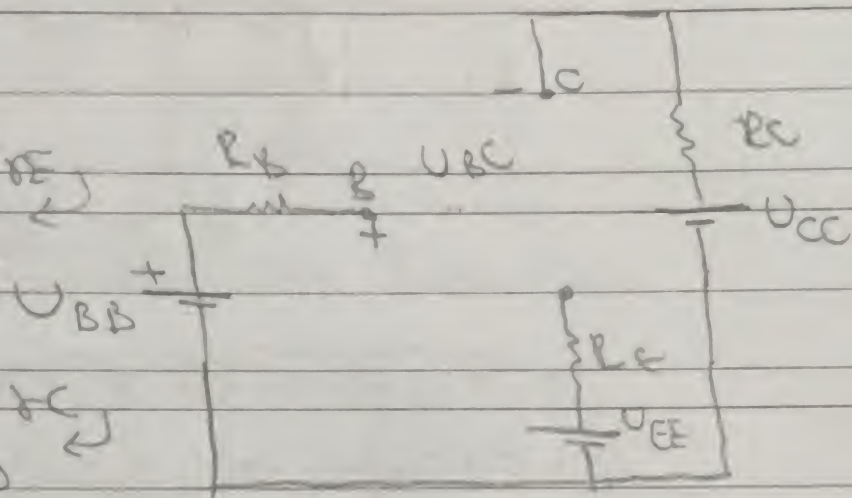 C
RC
RB
B UBC
+
UCC
+
UBB
RE
UEE